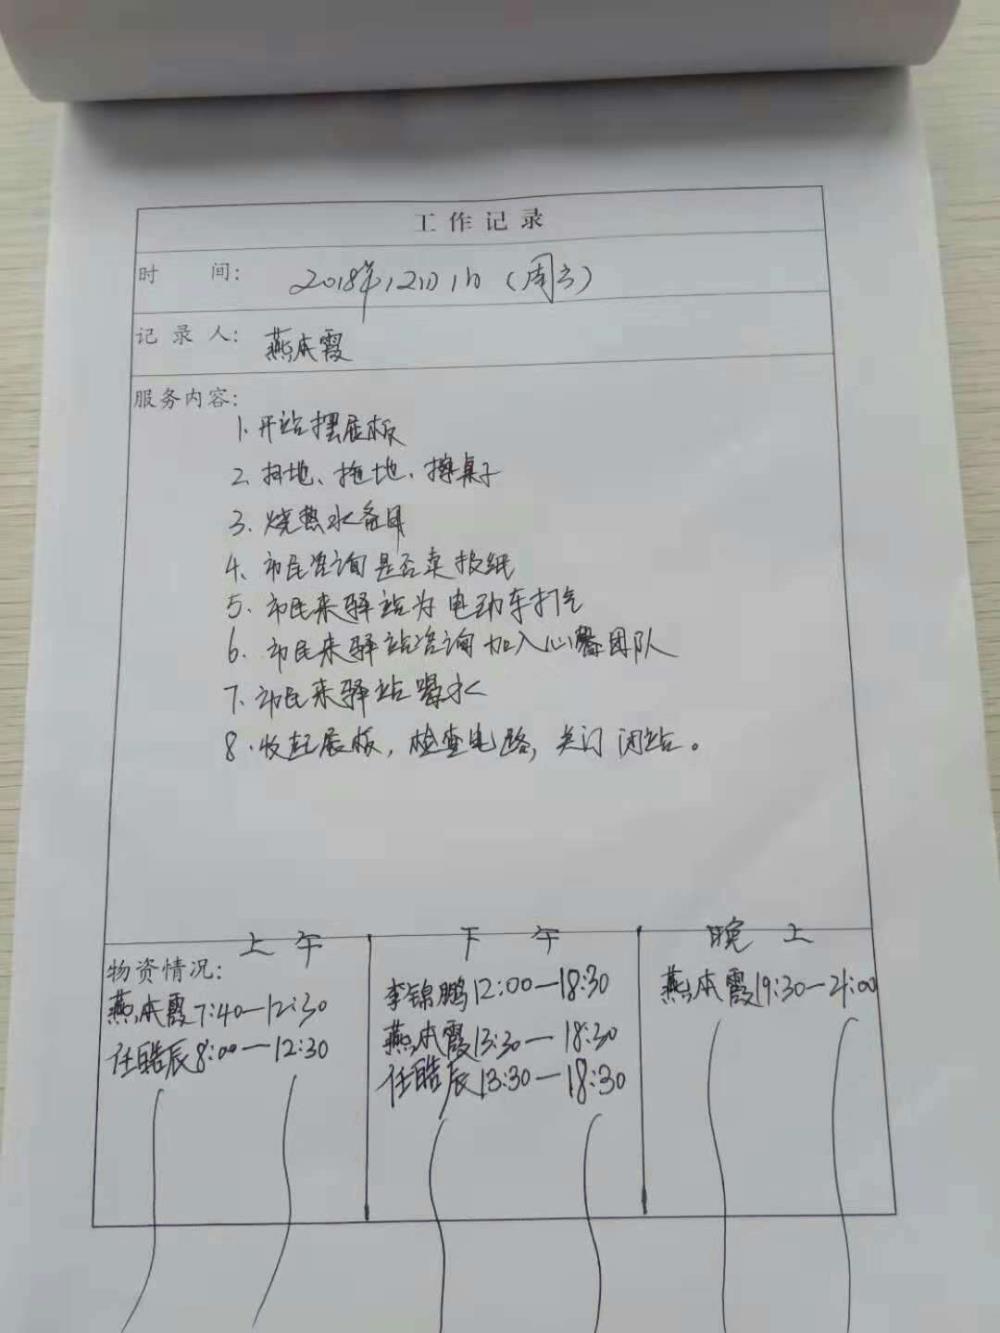 工作记录
时 间: 2018年12月1日（周六）
记录人: 燕本霞
服务内容:
1. 开站摆展板
2. 扫地、拖地、擦桌子
3. 烧热水备用
4. 市民咨询是否卖报纸
5. 市民来驿站为电动车打气
6. 市民来驿站咨询加入心馨团队
7. 市民来驿站喝水
8. 收起展板，检查电路，关门闭站。
上午 下午 晚上
物资情况:
燕本霞7:40—12:30
任皓辰8:00—12:30
李锦鹏12:00—18:30
燕本霞13:30—18:30
任皓辰13:30—18:30
燕本霞19:30—21:00